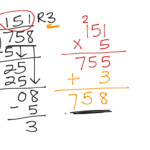 151 R3
758
-5↓
25
25↓
08
- 5
3
2
151
x 5
755
+ 3
758